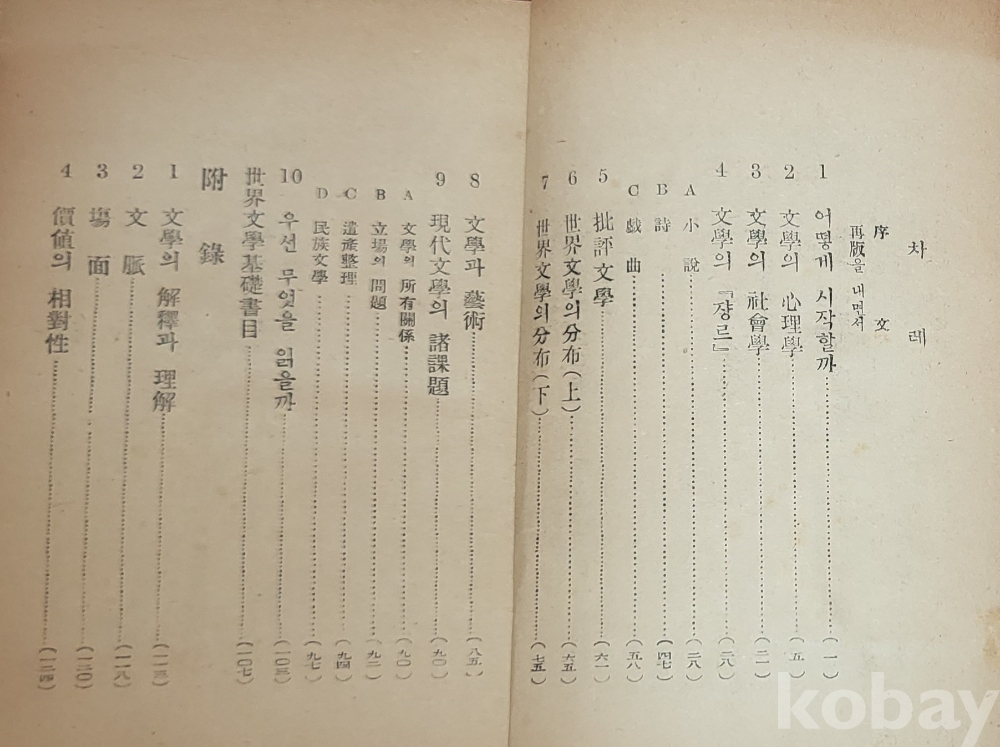 차례
序文
再版을 내면서
1 어떻게 시작할까 (一)
2 文學의 心理學 (五)
3 文學의 社會學 (二一)
4 文學의 「쟝르」 (二八)
A 小說 (二八)
B 詩 (四七)
C 戱曲 (五八)
5 批評文學 (六一)
6 世界文學의 分布(上) (六五)
7 世界文學의 分布(下) (七五)
8 文學과 藝術 (八五)
9 現代文學의 諸課題 (九〇)
A 文學의 所有關係 (九〇)
B 立場의 問題 (九二)
C 遺產整理 (九四)
D 民族文學 (九七)
10 우선 무엇을 읽을까 (一〇三)
世界文學基礎書目 (一〇七)
附錄
1 文學의 解釋과 理解 (一一三)
2 文脈 (一一八)
3 塲面 (一二〇)
4 價値의 相對性 (一二四)
kobay